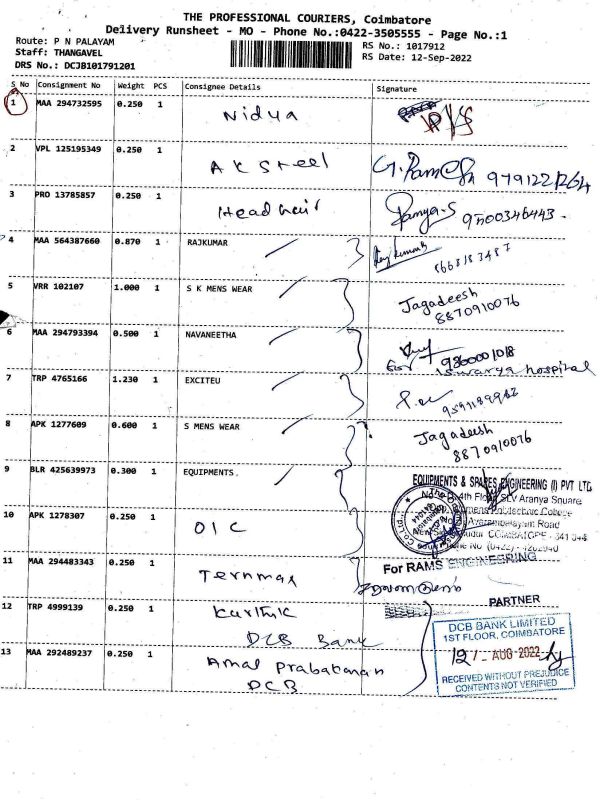 THE PROFESSIONAL COURIERS, Coimbatore
Delivery Runsheet - MO - Phone No.:0422-3505555 - Page No.:1
Route: P N PALAYAM
RS No.: 1017912
Staff: THANGAVEL
RS Date: 12-Sep-2022
DRS No.: DCJB101791201
S No Consignment No Weight PCS Consignee Details Signature
1 MAA 294732595 0.250 1 Nidya
2 VPL 125195349 0.250 1 A K Steel
3 PRO 13785857 0.250 1 Head hair Ramya.S 9500346443
4 MAA 564387660 0.870 1 RAJKUMAR
8668183487
5 VRR 102107 1.000 1 S K MENS WEAR Jagadeesh
8870910076
6 MAA 294793394 0.500 1 NAVANEETHA 9360001018
hospital
7 TRP 4765166 1.230 1 EXCITEU
8 APK 1277609 0.600 1 S MENS WEAR Jagadeesh
8870910076
9 BLR 425639973 0.300 1 EQUIPMENTS
EQUIPMENTS & SPARES ENGINEERING (I) PVT LTD
4th Floor, SLV Aranya Square
Polytechnic College
Avarampalayam Road
10 APK 1278307 0.250 1 OIC
11 MAA 294483343 0.250 1 Termmax
For RAMS ENGINEERING
PARTNER
12 TRP 4999139 0.250 1 Karthik
DCB Bank
DCB BANK LIMITED
1ST FLOOR, COIMBATORE
13 MAA 292489237 0.250 1 Amal Prabakanan
DCB
AUG 2022
RECEIVED WITHOUT PREJUDICE
CONTENTS NOT VERIFIED